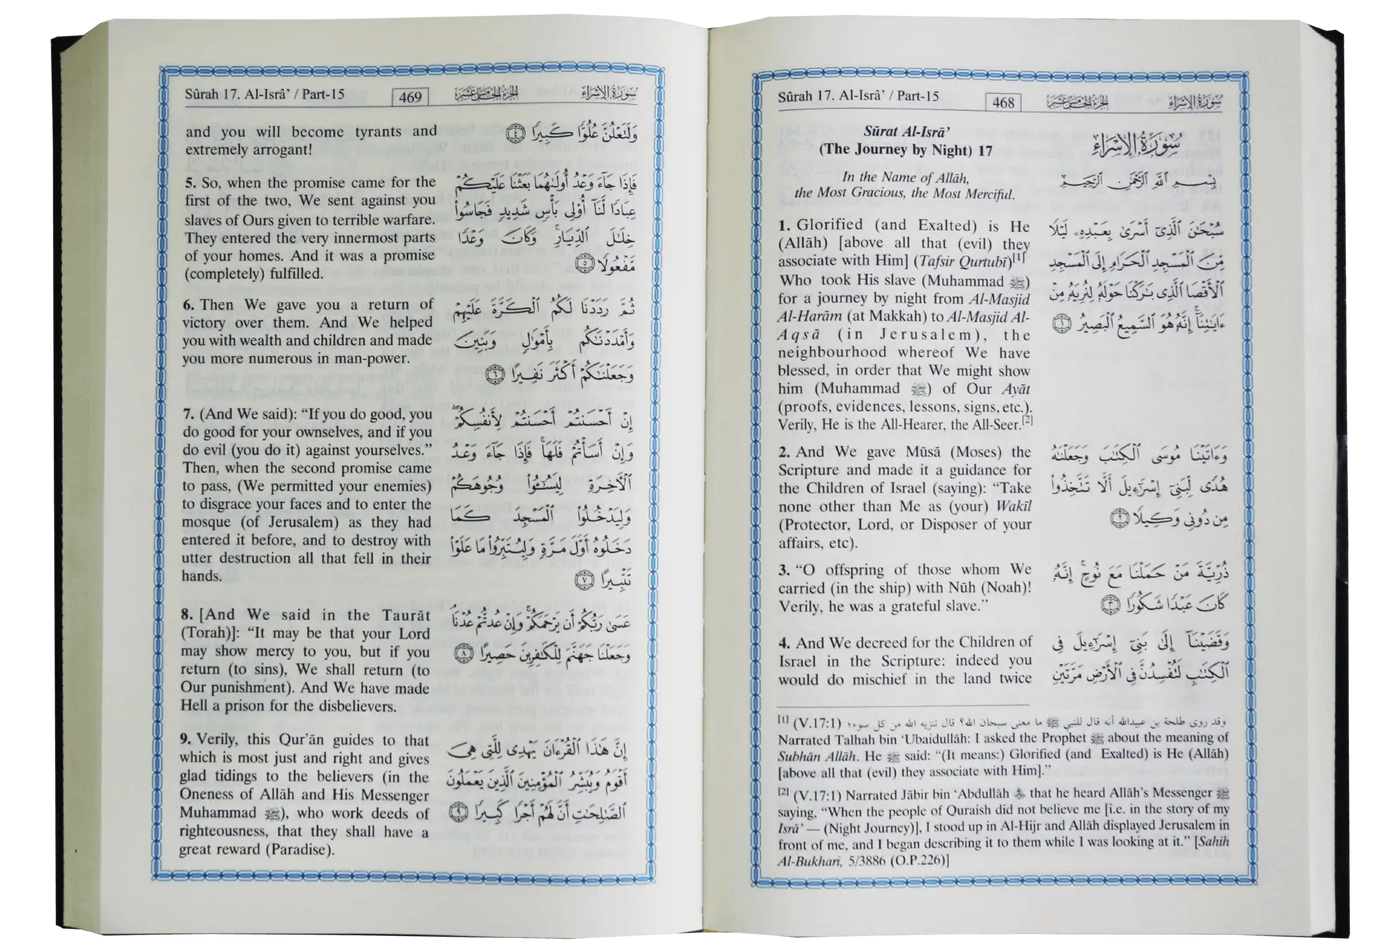 Sûrah 17. Al-Isrâ’ / Part-15
468
الجزء الخامس عشر
سورة الإسراء
Sûrat Al-Isrâ’
(The Journey by Night) 17
In the Name of Allâh,
the Most Gracious, the Most Merciful.
1. Glorified (and Exalted) is He
(Allâh) [above all that (evil) they
associate with Him] (Tafsir Qurtubî)[1]
Who took His slave (Muhammad ﷺ)
for a journey by night from Al-Masjid
Al-Harâm (at Makkah) to Al-Masjid Al-
Aqsâ (in Jerusalem), the
neighbourhood whereof We have
blessed, in order that We might show
him (Muhammad ﷺ) of Our Ayât
(proofs, evidences, lessons, signs, etc.).
Verily, He is the All-Hearer, the All-Seer.[2]
2. And We gave Mûsâ (Moses) the
Scripture and made it a guidance for
the Children of Israel (saying): “Take
none other than Me as (your) Wakîl
(Protector, Lord, or Disposer of your
affairs, etc).
3. “O offspring of those whom We
carried (in the ship) with Nûh (Noah)!
Verily, he was a grateful slave.”
4. And We decreed for the Children of
Israel in the Scripture: indeed you
would do mischief in the land twice
سُورَةُ الإِسْرَاءِ
بِسْمِ ٱللَّهِ ٱلرَّحْمَٰنِ ٱلرَّحِيمِ
سُبْحَٰنَ ٱلَّذِىٓ أَسْرَىٰ بِعَبْدِهِۦ لَيْلًا
مِّنَ ٱلْمَسْجِدِ ٱلْحَرَامِ إِلَى ٱلْمَسْجِدِ
ٱلْأَقْصَا ٱلَّذِى بَٰرَكْنَا حَوْلَهُۥ لِنُرِيَهُۥ مِنْ
ءَايَٰتِنَآ ۚ إِنَّهُۥ هُوَ ٱلسَّمِيعُ ٱلْبَصِيرُ ١
وَءَاتَيْنَا مُوسَى ٱلْكِتَٰبَ وَجَعَلْنَٰهُ
هُدًى لِّبَنِىٓ إِسْرَٰٓءِيلَ أَلَّا تَتَّخِذُوا۟
مِن دُونِى وَكِيلًا ٢
ذُرِّيَّةَ مَنْ حَمَلْنَا مَعَ نُوحٍ ۚ إِنَّهُۥ
كَانَ عَبْدًا شَكُورًا ٣
وَقَضَيْنَآ إِلَىٰ بَنِىٓ إِسْرَٰٓءِيلَ فِى
ٱلْكِتَٰبِ لَتُفْسِدُنَّ فِى ٱلْأَرْضِ مَرَّتَيْنِ
[1] (V.17:1) وقد روى طلحة بن عبيدالله أنه قال للنبي ﷺ ما معنى سبحان الله؟ قال تنزيه الله من كل سوء؛
Narrated Talhah bin ‘Ubaidullâh: I asked the Prophet ﷺ about the meaning of
Subhân Allâh. He ﷺ said: “(It means:) Glorified (and Exalted) is He (Allâh)
[above all that (evil) they associate with Him].”
[2] (V.17:1) Narrated Jâbir bin ‘Abdullâh that he heard Allâh’s Messenger ﷺ
saying, “When the people of Quraish did not believe me [i.e. in the story of my
Isrâ’ — (Night Journey)], I stood up in Al-Hijr and Allâh displayed Jerusalem in
front of me, and I began describing it to them while I was looking at it.” [Sahih
Al-Bukhari, 5/3886 (O.P.226)]
Sûrah 17. Al-Isrâ’ / Part-15
469
الجزء الخامس عشر
سورة الإسراء
and you will become tyrants and
extremely arrogant!
5. So, when the promise came for the
first of the two, We sent against you
slaves of Ours given to terrible warfare.
They entered the very innermost parts
of your homes. And it was a promise
(completely) fulfilled.
6. Then We gave you a return of
victory over them. And We helped
you with wealth and children and made
you more numerous in man-power.
7. (And We said): “If you do good, you
do good for your ownselves, and if you
do evil (you do it) against yourselves.”
Then, when the second promise came
to pass, (We permitted your enemies)
to disgrace your faces and to enter the
mosque (of Jerusalem) as they had
entered it before, and to destroy with
utter destruction all that fell in their
hands.
8. [And We said in the Taurât
(Torah)]: “It may be that your Lord
may show mercy to you, but if you
return (to sins), We shall return (to
Our punishment). And We have made
Hell a prison for the disbelievers.
9. Verily, this Qur’ân guides to that
which is most just and right and gives
glad tidings to the believers (in the
Oneness of Allâh and His Messenger
Muhammad ﷺ), who work deeds of
righteousness, that they shall have a
great reward (Paradise).
وَلَتَعْلُنَّ عُلُوًّا كَبِيرًا ٤
فَإِذَا جَآءَ وَعْدُ أُولَىٰهُمَا بَعَثْنَا عَلَيْكُمْ
عِبَادًا لَّنَآ أُو۟لِى بَأْسٍ شَدِيدٍ فَجَاسُوا۟
خِلَٰلَ ٱلدِّيَارِ ۚ وَكَانَ وَعْدًا
مَّفْعُولًا ٥
ثُمَّ رَدَدْنَا لَكُمُ ٱلْكَرَّةَ عَلَيْهِمْ
وَأَمْدَدْنَٰكُم بِأَمْوَٰلٍ وَبَنِينَ
وَجَعَلْنَٰكُمْ أَكْثَرَ نَفِيرًا ٦
إِنْ أَحْسَنتُمْ أَحْسَنتُمْ لِأَنفُسِكُمْ ۖ
وَإِنْ أَسَأْتُمْ فَلَهَا ۚ فَإِذَا جَآءَ وَعْدُ
ٱلْءَاخِرَةِ لِيَسُۥٓـُٔوا۟ وُجُوهَكُمْ
وَلِيَدْخُلُوا۟ ٱلْمَسْجِدَ كَمَا
دَخَلُوهُ أَوَّلَ مَرَّةٍ وَلِيُتَبِّرُوا۟ مَا عَلَوْا۟
تَتْبِيرًا ٧
عَسَىٰ رَبُّكُمْ أَن يَرْحَمَكُمْ ۚ وَإِنْ عُدتُّمْ عُدْنَا ۘ
وَجَعَلْنَا جَهَنَّمَ لِلْكَٰفِرِينَ حَصِيرًا ٨
إِنَّ هَٰذَا ٱلْقُرْءَانَ يَهْدِى لِلَّتِى هِىَ
أَقْوَمُ وَيُبَشِّرُ ٱلْمُؤْمِنِينَ ٱلَّذِينَ يَعْمَلُونَ
ٱلصَّٰلِحَٰتِ أَنَّ لَهُمْ أَجْرًا كَبِيرًا ٩